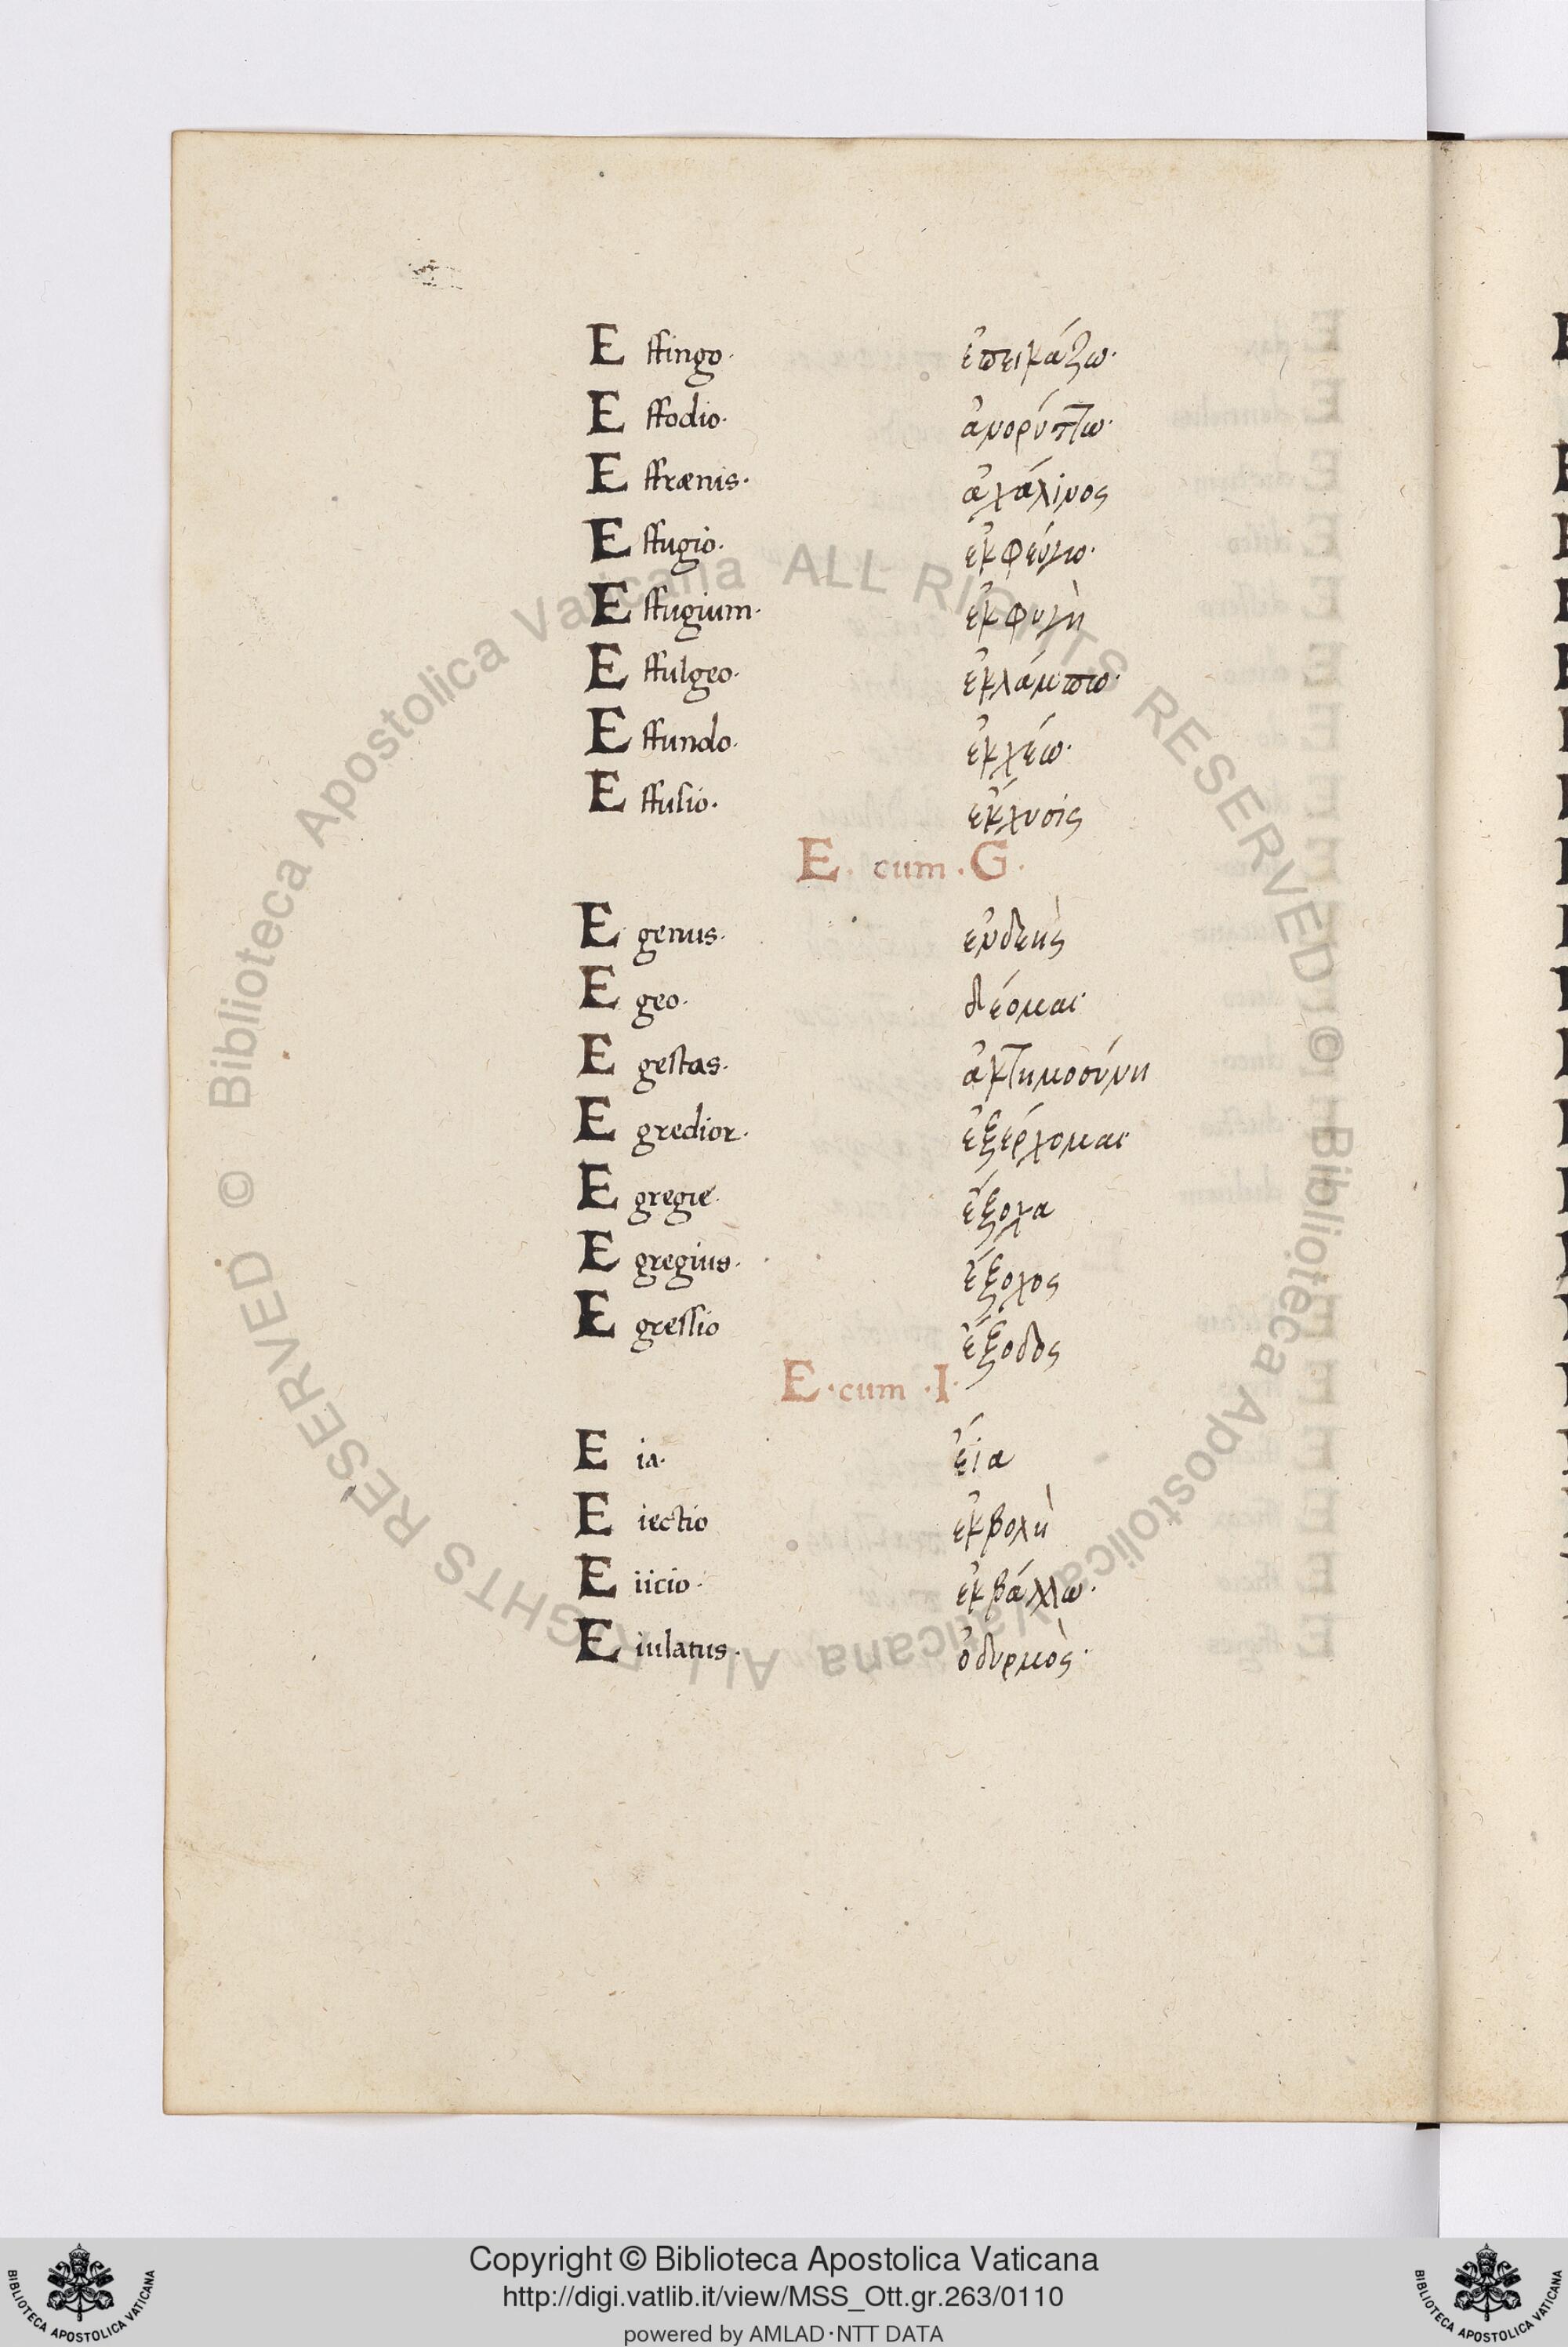 Effingo· ἐπεικάζω·
Effodio· ἀνορύπτω·
Effrænis· ἀχάλινος
Effugio· ἐκφεύγω·
Effugium· ἐκφυγὴ
Effulgeo· ἐκλάμπω·
Effundo· ἐκχέω·
Effusio· ἔκχυσις
E· cum ·G·
Egenus· ἐνδεὴς
Egeo· δέομαι
Egestas· ἀκτημοσύνη
Egredior· ἐξέρχομαι
Egregie· ἔξοχα
Egregius· ἔξοχος
Egressio ἔξοδος
E·cum ·I·
Eia· εἴα
Eiectio ἐκβολὴ
Eiicio· ἐκβάλλω·
Eiulatus· ὀδυρμὸς·
© Biblioteca Apostolica Vaticana ALL RIGHTS RESERVED
© Biblioteca Apostolica Vaticana ALL RIGHTS RESERVED
Copyright © Biblioteca Apostolica Vaticana
http://digi.vatlib.it/view/MSS_Ott.gr.263/0110
powered by AMLAD·NTT DATA
BIBLIOTECA APOSTOLICA VATICANA
BIBLIOTECA APOSTOLICA VATICANA